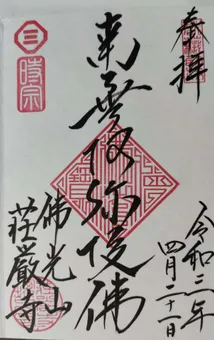 奉拝
南無阿弥陀佛
佛光山
荘嚴寺
令和三年
四月二十一日
時宗
三